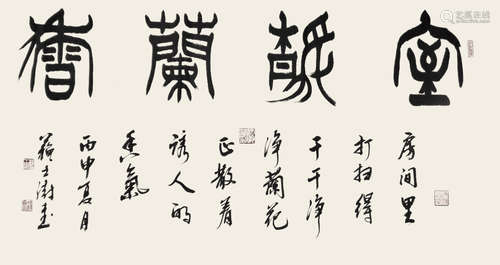 室靜蘭香
房间里
打扫得
干干净
净蘭花
正散着
誘人的
香氣
丙申夏月
蘇士澍書